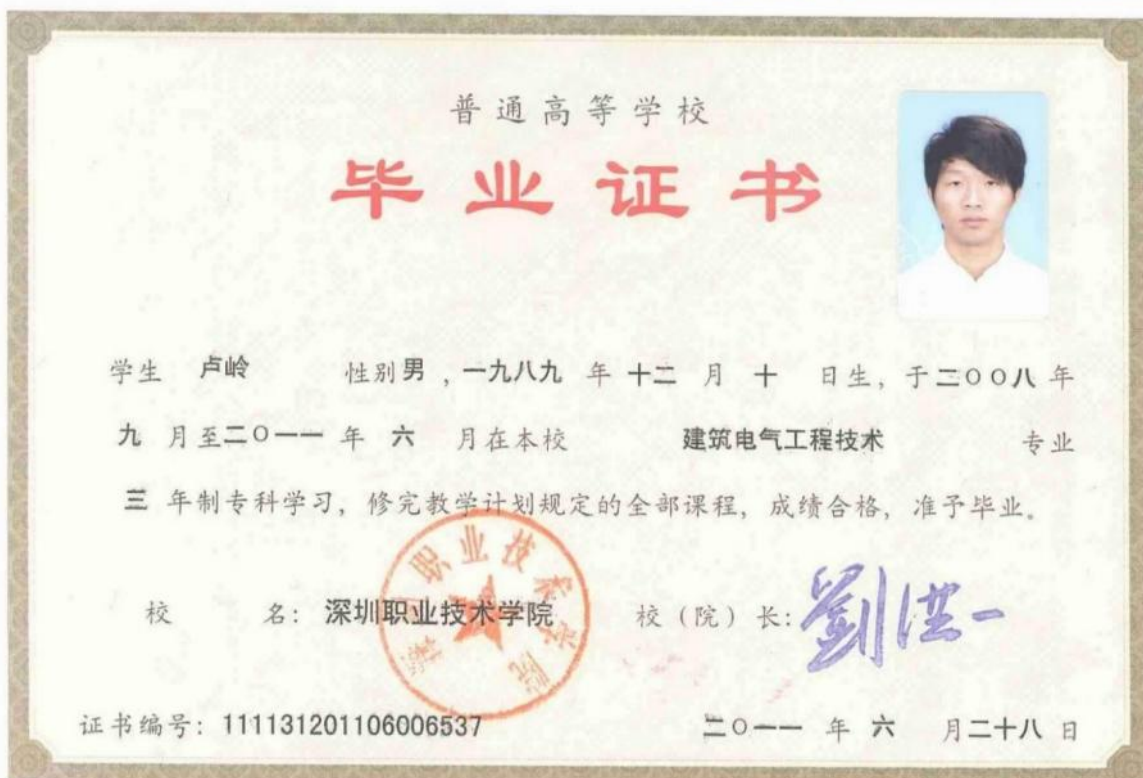 普通高等学校
毕业证书
学生 卢岭 性别 男 ，一九八九 年 十二 月 十 日生，于二〇〇八 年
九 月至二〇一一 年 六 月在本校 建筑电气工程技术 专业
三 年制专科学习，修完教学计划规定的全部课程，成绩合格，准予毕业。
深圳职业技术学院
校 名：深圳职业技术学院 校（院）长：劉洪一
证书编号：111131201106006537 二〇一一 年 六 月二十八 日